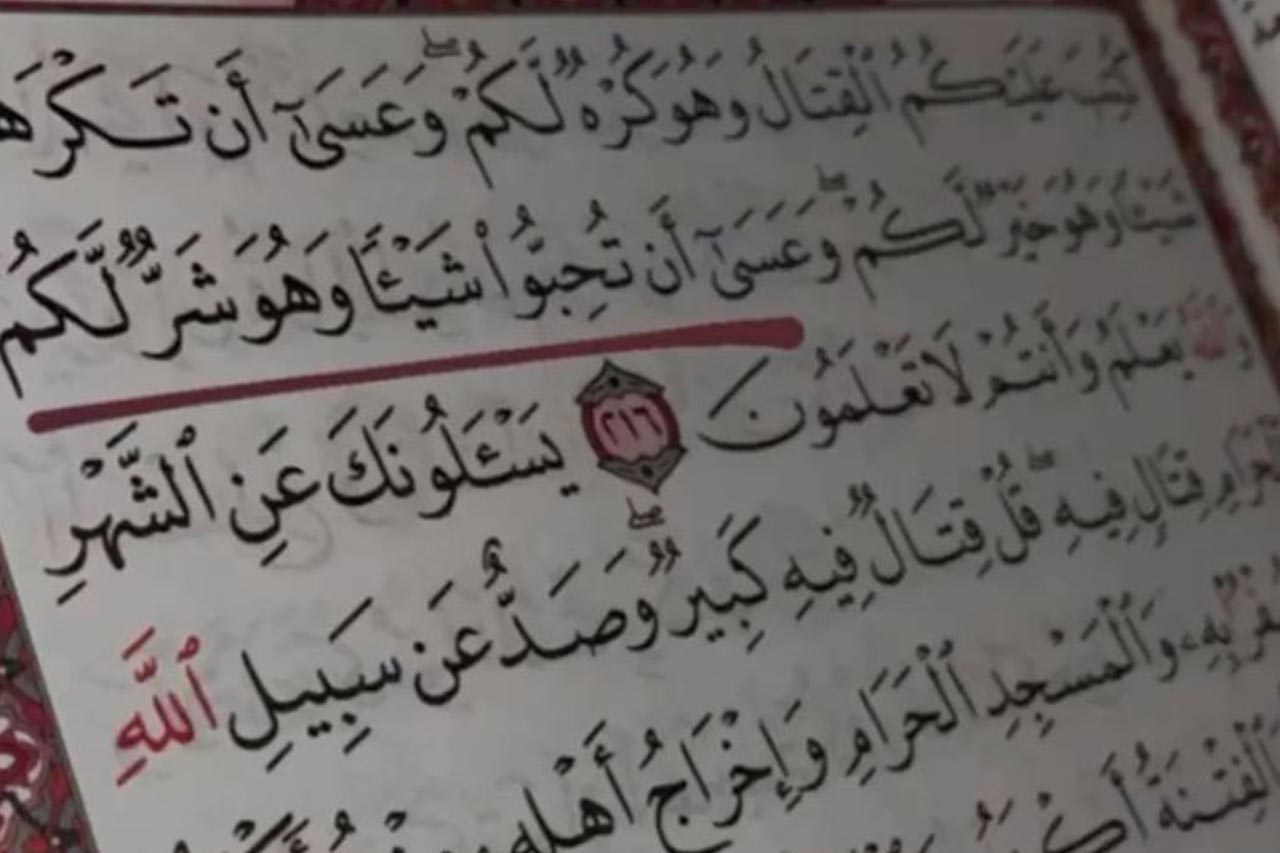 كُتِبَ عَلَيْكُمُ ٱلْقِتَالُ وَهُوَ كُرْهٌ لَّكُمْ ۖ وَعَسَىٰٓ أَن تَكْرَه
شَيْـًٔا وَهُوَ خَيْرٌ لَّكُمْ ۖ وَعَسَىٰٓ أَن تُحِبُّوا۟ شَيْـًٔا وَهُوَ شَرٌّ لَّكُمْ
يَعْلَمُ وَأَنتُمْ لَا تَعْلَمُونَ ٢١٦ يَسْـَٔلُونَكَ عَنِ ٱلشَّهْرِ
ٱلْحَرَامِ قِتَالٍ فِيهِ ۖ قُلْ قِتَالٌ فِيهِ كَبِيرٌ ۖ وَصَدٌّ عَن سَبِيلِ ٱللَّهِ
بِهِۦ وَٱلْمَسْجِدِ ٱلْحَرَامِ وَإِخْرَاجُ أَهْلِهِۦ
وَٱلْفِتْنَةُ